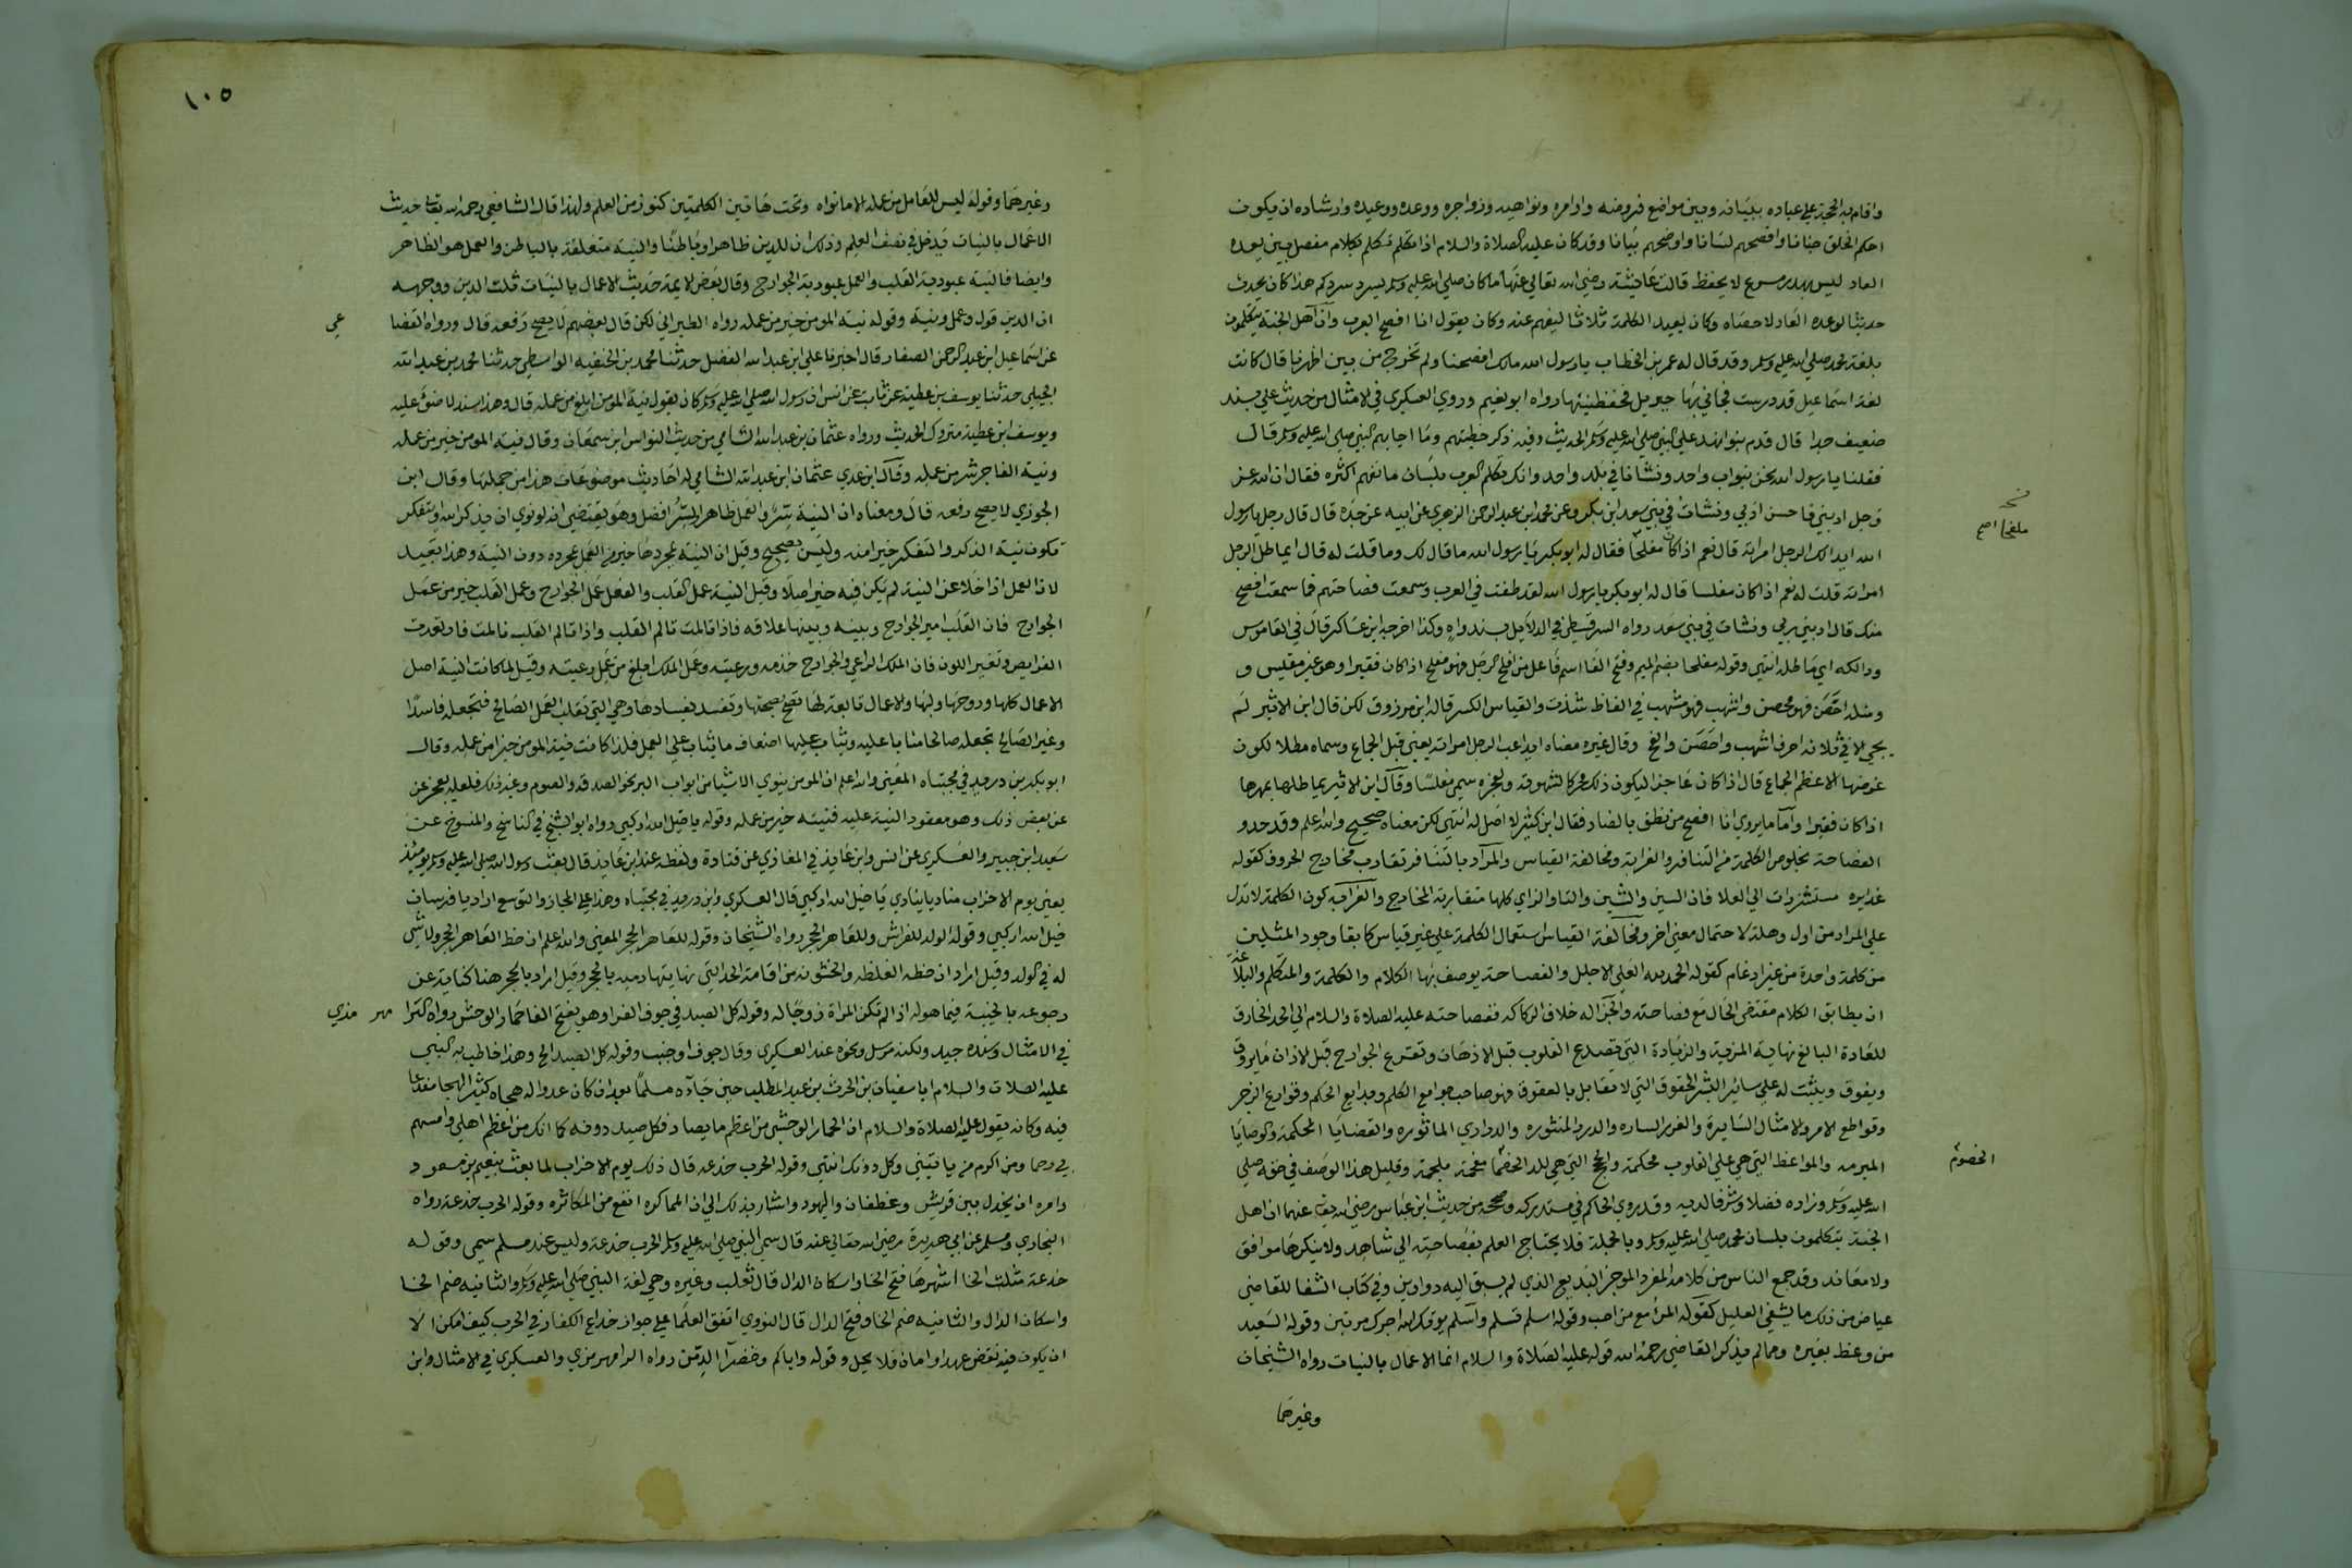 واقام به الحجة على عباده ببيانه وبين مواضع فروضه واوامره ونواهيه وزواجره ووعده ووعيده وارشاده ان يكون
احكم الخلق جنانا وافصحهم لسانا واوضحهم بيانا وقد كان عليه الصلاة والسلام اذا تكلم تكلم بكلام مفصل مبين يعده
العاد ليس بهذر مسرع لا يحفظ قالت عايشة رضي الله تعالى عنها ما كان صلى الله عليه وسلم يسرد سردكم هذا كان يحدث
حديثا لوعده العاد لاحصاه وكان يعيد الكلمة ثلاثا ليفهم عنه وكان يقول انا افصح العرب وان اهل الجنة يتكلمون
بلغة محمد صلى الله عليه وسلم وقد قال له عمر بن الخطاب يا رسول الله مالك افصحنا ولم تخرج من بين اظهرنا قال كانت
لغة اسماعيل قد درست فجاني بها جبريل فحفظنيها رواه ابو نعيم وروي العسكري في الامثال من حديث علي بسند
ضعيف جدا قال قدم بنو نهد على النبي صلى الله عليه وسلم الحديث وفيه ذكر خطبتهم وما اجابهم النبي صلى الله عليه وسلم قال
فقلنا يا رسول الله نحن بنو اب واحد ونشانا في بلد واحد وانك تكلم العرب بلسان ما نفهم اكثره فقال ان الله عز
وجل ادبني فاحسن ادبي ونشات في بني سعد ابن بكر وعن محمد ابن عبد الرحمن الزهري عن ابيه عن جده قال قال رجل يا رسول
الله ايدالك الرجل امراته قال نعم اذا كان مفلحا فقال له ابو بكر يا رسول الله ما قال لك وما قلت له قال ايماطل الرجل
امراته قلت له نعم اذا كان مفلسا قال له ابو بكر يا رسول الله لقد طفت في العرب وسمعت فصاحتهم فما سمعت افصح
منك قال ادبني ربي ونشات في بني سعد رواه السرقسطي في الدلايل بسند واه وكذا اخرجه ابن عساكر قال في القاموس
ودالكه اي ماطله انتهى وقوله مفلحا بضم الميم وفتح الفا اسم فاعل من افلج الرجل فهو مفلج اذا كان فقيرا وهو غير مقيس و
ومثله احصن فهو محصن واشهب فهو مشهب في الفاظ شذت والقياس الكسر قاله ابن مرزوق لكن قال ابن الاثير لم
يجي الا في ثلاثة احرف اشهب واحصن والفج وقال غيره معناه ايداعب الرجل امراته يعني قبل الجماع وسماه مطلا لكون
غرضها الاعظم الجماع قال اذا كان عاجزا ليكون ذلك محركا لشهوته ولعجزه سمي مفلسا وقال ابن الاثير يماطلها بمهرها
اذا كان فقيرا واما ما يروي انا افصح من نطق بالضاد فقال ابن كثير لا اصل له انتهى لكن معناه صحيح والله اعلم وقد حدو
الفصاحة بخلوص الكلمة من التنافر والغرابة ومخالفة القياس والمراد بالتنافر تقارب مخارج الحروف كقوله
غدايره مستشزرات الى العلا فان السين والشين والتا والزاي كلها متقاربة المخارج والغرابة كون الكلمة لا تدل
على المراد من اول وهلة لاحتمال معنى اخر ومخالفة القياس استعمال الكلمة على غير قياس كابقا وجود المثلين
من كلمة واحدة من غير ادغام كقوله الحمد لله العلي الاجلل والفصاحة يوصف بها الكلام والكلمة والمتكلم والبلاغة
ان يطابق الكلام مقتضى الحال مع فصاحته والجزالة خلاف الركاكة ففصاحته عليه الصلاة والسلام الى الحد الخارق
للعادة البالغ نهاية المزية والزيادة التي تصدع القلوب قبل الاذهان وتقرع الجوارح قبل الاذان ما يروق
ويفوق ويثبت له على سائر البشر الحقوق التي لا تقابل بالعقوق فهو صاحب جوامع الكلم وبدايع الحكم وقوارع الزجر
وقواطع الامر والامثال السايرة والغرر الساره والدرر المنثوره والدراري الماثوره والقضايا المحكمة والوصايا
المبرمه والمواعظ التي هي على القلوب محكمة والحجج التي هي للد الخصما مفحمة ملجمة وقليل هذا الوصف في حقه صلى
الله عليه وسلم وزاده فضلا وشرفا لديه وقد روي الحاكم في مستدركه وصححه من حديث ابن عباس رضي الله تعالى عنهما ان اهل
الجنة يتكلمون بلسان محمد صلى الله عليه وسلم وبالجملة فلا يحتاج العلم بفصاحته الى شاهد ولا ينكرها موافق
ولا معاند وقد جمع الناس من كلامه المفرد الموجز البديع الذي لم يسبق اليه دواوين وفي كتاب الشفا للقاضي
عياض من ذلك ما يشفي العليل كقوله المرا مع من احب وقوله اسلم تسلم واسلم يوتك الله اجرك مرتين وقوله السعيد
من وعظ بغيره ومما لم يذكر القاضي رحمه الله قوله عليه الصلاة والسلام انما الاعمال بالنيات رواه الشيخان
وغيرهما
ملفجا صح
الخصوم
١٠٥
وغيرهما وقوله ليس للعامل من عمله الا ما نواه وتحت هاتين الكلمتين كنوز من العلم ولهذا قال الشافعي رحمه الله تعالى حديث
الاعمال بالنيات يدخل في نصف العلم وذلك ان للدين ظاهرا وباطنا والنية متعلقة بالباطن والعمل هو الظاهر
وايضا فالنية عبودية القلب والعمل عبودية الجوارح وقال بعض الايمة حديث الاعمال بالنيات ثلث الدين ووجهه
ان الدين قول وعمل ونية وقوله نية المومن خير من عمله رواه الطبراني لكن قال بعضهم لا يصح رفعه قال ورواه القضا
عي
عن اسماعيل ابن عبد الرحمن الصفار قال اخبرنا علي ابن عبد الله الفضل حدثنا محمد بن الحنفيه الواسطي حدثنا محمد بن عبد الله
الحبلي حدثنا يوسف بن عطية عن ثابت عن انس ان رسول الله صلى الله عليه وسلم كان يقول نية المومن ابلغ من عمله قال وهذا سند لا ضوء عليه
ويوسف ابن عطية متروك الحديث ورواه عثمان بن عبد الله الشامي من حديث النواس ابن سمعان وقال نية المومن خير من عمله
ونية الفاجر شر من عمله وقال ابن عدي عثمان ابن عبد الله الشامي له احاديث موضوعات هذا من جملتها وقال ابن
الجوزي لا يصح رفعه قال ومعناه ان النية سر والعمل ظاهر والسر افضل وهو يقتضي انه لو نوي ان يذكر الله او يتفكر
تكون نية الذكر والتفكر خيرا منه وليس بصحيح وقيل ان النية بمجردها خير من العمل بمجرده دون النية وهذا بعيد
لان العمل اذا خلا عن النية لم يكن فيه خير اصلا وقيل النية عمل القلب والفعل عمل الجوارح وعمل القلب خير من عمل
الجوارح فان القلب امير الجوارح وبينه وبينها علاقه فاذا تالمت تالم القلب واذا تالم القلب تالمت فارتعدت
الفرايص وتغير اللون فان الملك الراعي والجوارح خدمه ورعيته وعمل الملك ابلغ من عمل رعيته وقيل لما كانت النية اصل
الاعمال كلها وروحها ولبها والاعمال تابعة لها تصح بصحتها وتفسد بفسادها وهي التي تقلب العمل الصالح فتجعله فاسدا
وغير الصالح تجعله صالحا مثابا عليه ويثاب عليها اضعاف ما يثاب على العمل فلذا كانت نية المومن خيرا من عمله وقال
ابو بكر بن دريد في مجتباه المعنى والله اعلم ان المومن ينوي الاشيا من ابواب البر نحو الصدقه والصوم وغير ذلك فلعله يعجز عن
عن بعض ذلك وهو معقود النية عليه فنيته خير من عمله وقوله يا خيل الله اركبي رواه ابو الشيخ في الناسخ والمنسوخ عن
سعيد ابن جبير والعسكري عن انس وابن عايذ في المغازي عن قتادة ولفظه عند ابن عايذ قال بعث رسول الله صلى الله عليه وسلم يوميذ
يعني يوم الاحزاب مناديا ينادي يا خيل الله اركبي قال العسكري وابن دريد في مجتباه وهذا على المجاز والتوسع اراد يا فرسان
خيل الله اركبي وقوله الولد للفراش وللعاهر الحجر رواه الشيخان وقوله للعاهر الحجر المعنى والله اعلم ان حظ العاهر الحجر ولا شي
له في الولد وقيل اراد ان حظه الغلظه والخشونه من اقامة الحد التي نهايتها رميه بالحجر وقيل اراد بالحجر هنا كناية عن
رجوعه بالخيبة فيما هوله اذا لم تكن المراة زوجا له وقوله كل الصيد في جوف الفرا وهو بفتح الفا حمار الوحش رواه الرا مهر مزي
في الامثال وسنده جيد ولكنه مرسل ونحوه عند العسكري وقال جوف او جنب وقوله كل الصيد الخ وهذا خاطب به النبي
عليه الصلات والسلام ابا سفيان بن الحرث بن عبد المطلب حين جاءه مسلما بعد ان كان عدوا له هجاه كثير الهجا مقذعا
فيه وكانه يقول عليه الصلاة والسلام ان الحمار الوحشي من اعظم ما يصاد فكل صيد دونه كما انك من اعظم اهلي وامسهم
بي رحما ومن اكرم من ياتيني وكل دونك انتهى وقوله الحرب خدعه قال ذلك يوم الاحزاب لما بعث بنعيم بن مسعود
وامره ان يخذل بين قريش وغطفان واليهود واشار بذلك الى ان المماكره انفع من المكاثره وقوله الحرب خدعة رواه
البخاري ومسلم عن ابي هريرة رضي الله تعالى عنه قال سمي النبي صلى الله عليه وسلم الحرب خدعة وليس عند مسلم سمي وقوله
خدعة مثلث الخا اشهرها فتح الخا واسكان الدال قال ثعلب وغيره وهي لغة النبي صلى الله عليه وسلم والثانيه ضم الخا
واسكان الدال والثانيه ضم الخا وفتح الدال قال النووي اتفق العلما على جواز خداع الكفار في الحرب كيف امكن الا
ان يكون فيه نقض عهد او امان فلا يحل وقوله واياكم وخضرا الدمن رواه الرامهرمزي والعسكري في الامثال وابن